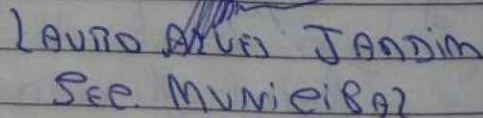 LAURO ALVES JARDIM
Sec. MUNiciPAL